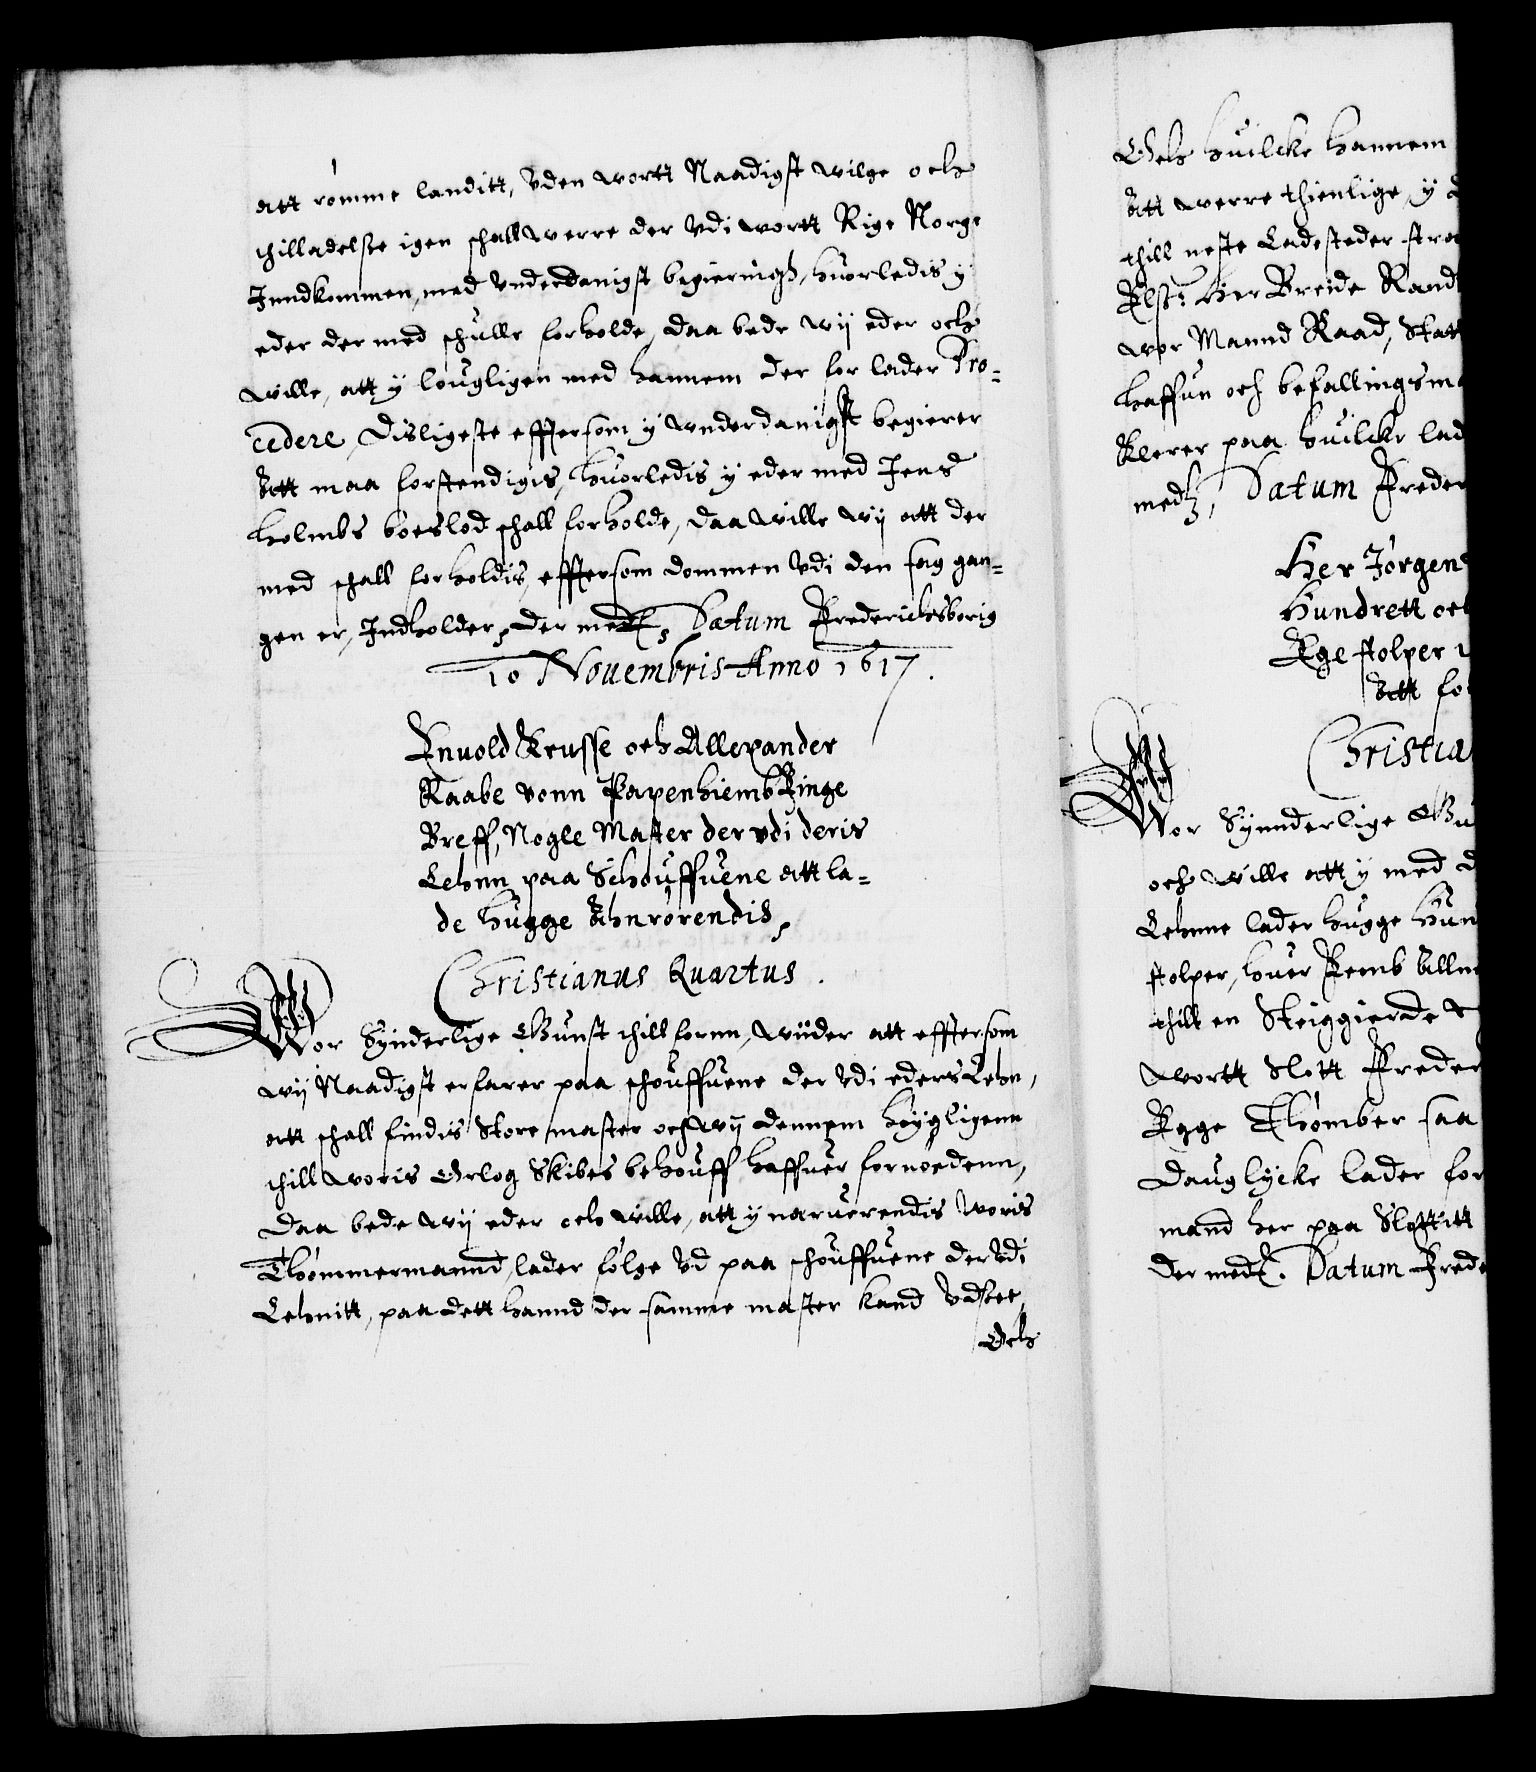 att römme landitt, vden wortt Naadigst wilge och
thilladelse igen schall werre der vdi wortt Rige Norge
Inndkommen, med vnderdanigst begieringh, huorledis y
eder der med schulle forholde, daa bede wij eder och
wille, att y lougligen med hannem der for lader Pro-
cedere, Disligeste efftersom y vnderdanigst begierer
Att maa forstendigis, huorledis y eder med Jens
Holmbs boeslod schall forholde, daa wille wij att der
med schall forholdis, efftersom dommen vdi den sag gan-
gen er, Indholder, der medt, Datum Frederichsborig
10 Nouembris Anno 1617.
Enuold Krusse och Allexander
Raabe vonn Papenhiemb Finge
Breff, Nogle Master der vdi deris
Lehnn paa Schouffuene att la-
de hugge Ahnrörendis,
Christianus Quartus.
Wor Synderlige Gunst thillfornn, wiider att efftersom
wij Naadigst erfarer paa schouffuene der vdi eders Lehn,
att schall findis Store master och wij dennem höygligenn
thill woris Orlog Skibes behouff haffuer fornöedenn,
Daa bede wij eder och wille, att y neruerendis Woris
Thömmermannd, lader fölge vd paa schouffuene der vdi
Lehnitt, paa dett hannd der samme master kand vdsee,
Och
Och huilcke hannem
Att werre thienlige, y
thill neste Ladesteder stra
Elsk: Her Breide Rand
wor Mannd Raad, Statt
Haffun och befallingsma
Klerer paa huilcke lad
medt, Datum Freder
Her Jörgen
Hundrett och
Ege stolper
Att fo
Christia
Wor Synnderlige Gu
och wille att y med d
Lehnne lader hugge Hun
stolper, huer Femb Allne
thill en Steiggierde
wortt Slott Freder
Egge Thömber saa
Dauglycke lader for
mand her paa Slottitt
Der medt. Datum Frede